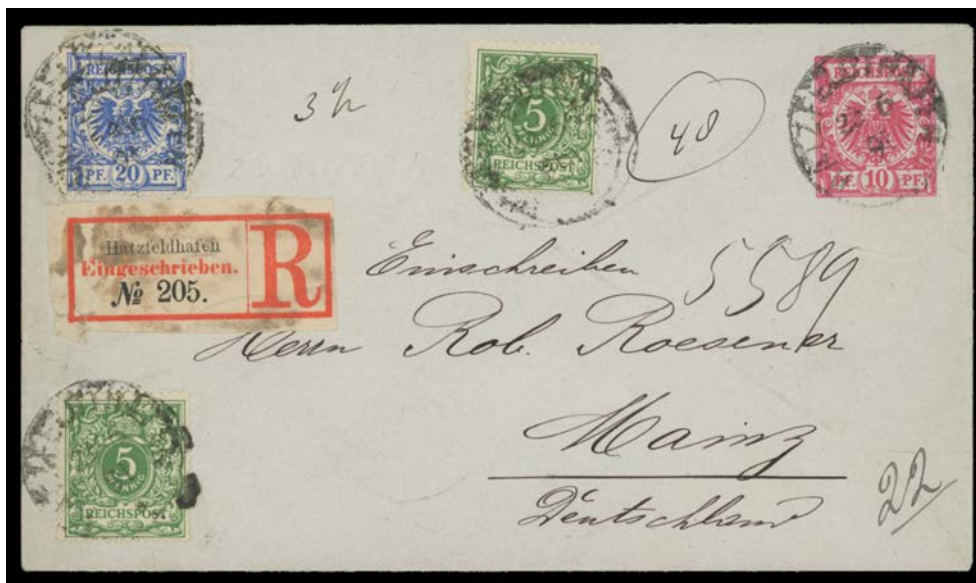 REICHSPOST
PF. 20 PF.
3½
5
REICHSPOST
48
REICHSPOST
PF. 10 PF.
Hatzfeldhafen
Eingeschrieben.
№ 205.
R
Einschreiben 5589
Herrn Rob. Roesener
Mainz
Deutschland
22
5
REICHSPOST